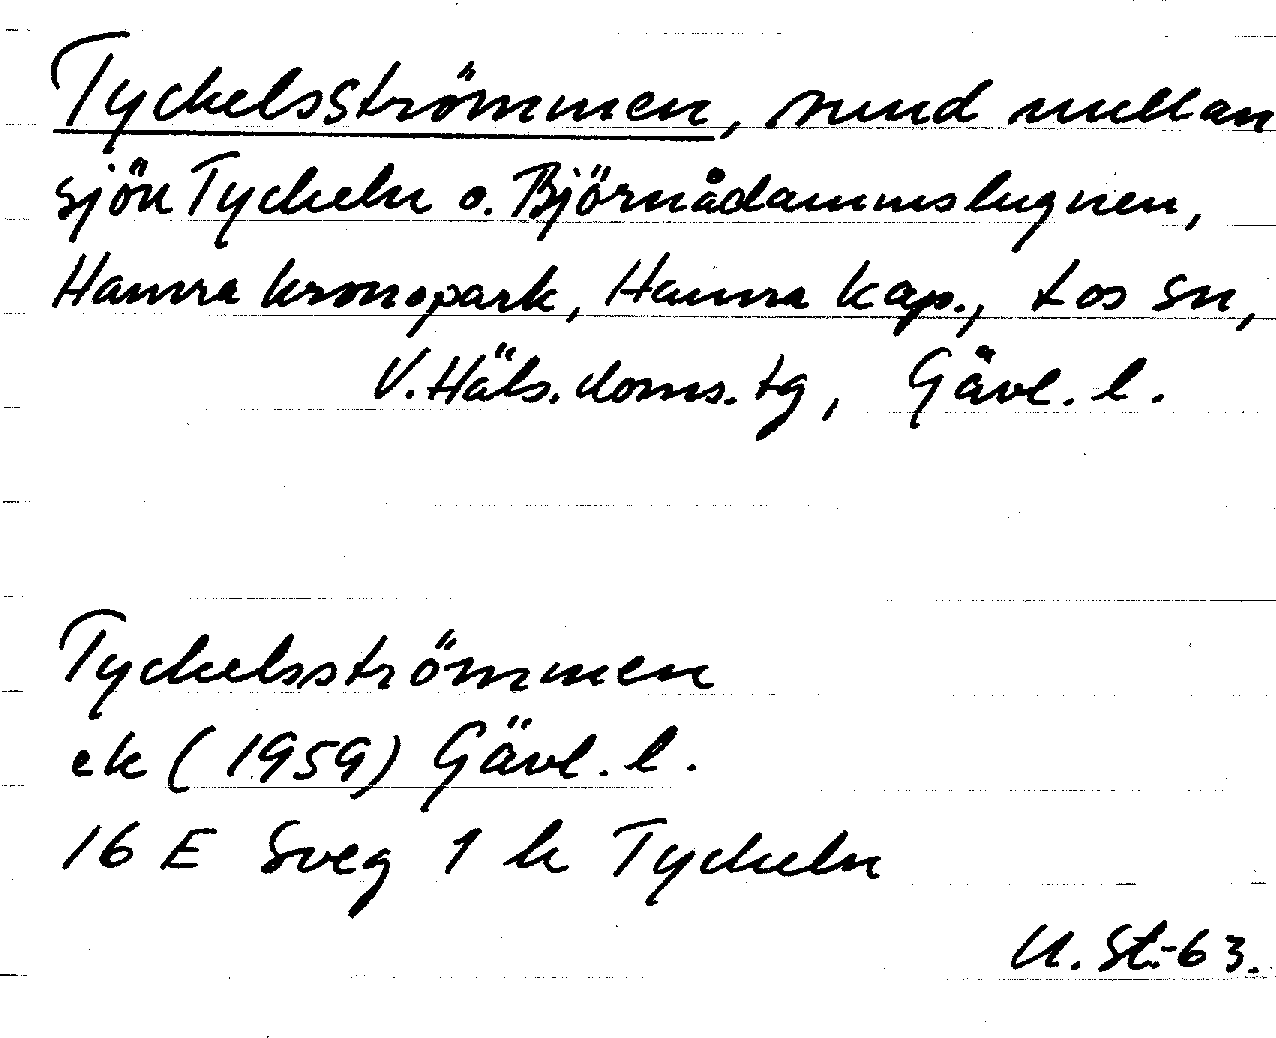 Tyckelsströmmen, sund mellan
sjön Tyckeln o. Björnådammslugnen,
Hamra kronopark, Hamra kap., Los sn,
V. Häls. doms. tg, Gävl. l.
Tyckelsströmmen
ek (1959) Gävl. l.
16 E Sveg 1 h Tyckeln
U. St.-63.